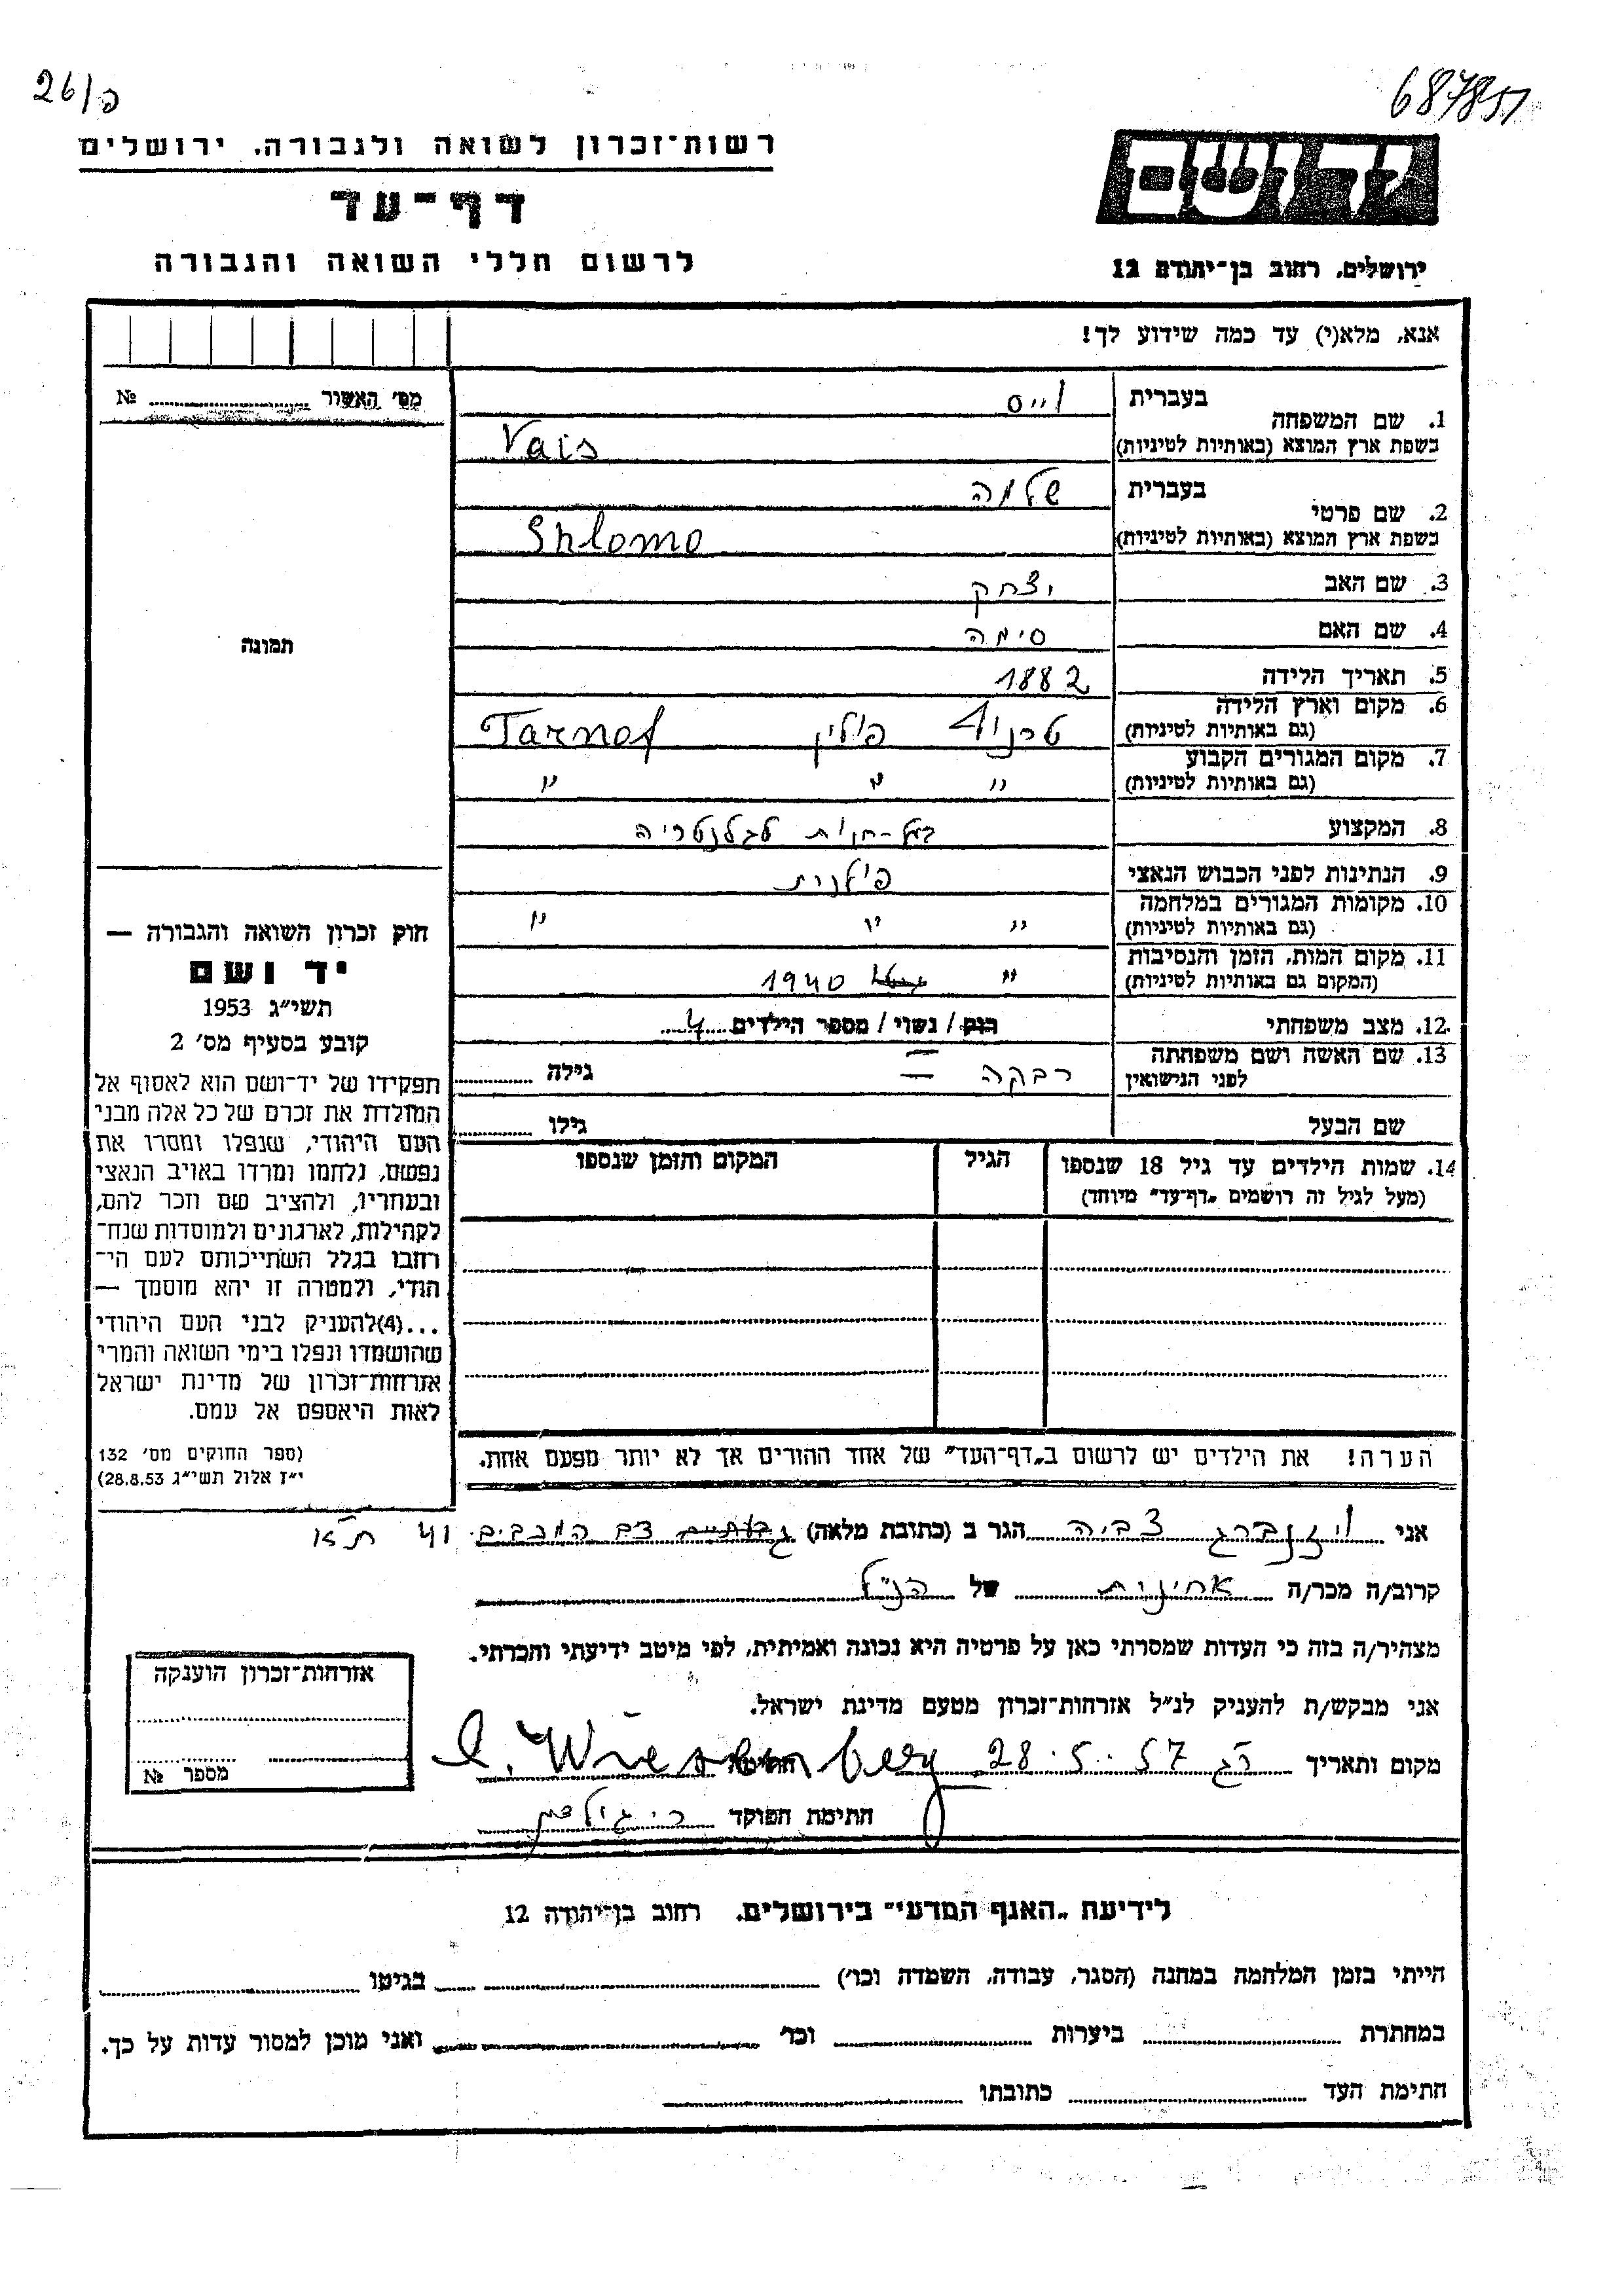 26/פ
687851
רשות־זכרון לשואה ולגבורה. ירושלים
דף־עד
לרשום חללי השואה והגבורה
יד ושם
ירושלים, רחוב בן־יהודה 12
אנא, מלא(י) עד כמה שידוע לך!
מס׳ האשור № ........
1. שם המשפחה בעברית וייס
בשפת ארץ המוצא (באותיות לטיניות) Vais
2. שם פרטי בעברית שלמה
בשפת ארץ המוצא (באותיות לטיניות) Shlomo
3. שם האב יצחק
4. שם האם סימה
5. תאריך הלידה 1882
6. מקום וארץ הלידה (גם באותיות לטיניות) טרנוף פולין Tarnof
7. מקום המגורים הקבוע (גם באותיות לטיניות) " " "
8. המקצוע בעל-חנות לגלנטריה
9. הנתינות לפני הכבוש הנאצי פולנית
10. מקומות המגורים במלחמה (גם באותיות לטיניות) " " "
11. מקום המות, הזמן והנסיבות (המקום גם באותיות לטיניות) " 1940
12. מצב משפחתי רווק / נשוי / מספר הילדים 4
13. שם האשה ושם משפחתה לפני הנישואין רבקה — גילה ........
שם הבעל גילו ........
14. שמות הילדים עד גיל 18 שנספו (מעל לגיל זה רושמים „דף־עד״ מיוחד)
הגיל
המקום והזמן שנספו
תמונה
חוק זכרון השואה והגבורה —
יד ושם
תשי״ג 1953
קובע בסעיף מס׳ 2
תפקידו של יד־ושם הוא לאסוף אל
המולדת את זכרם של כל אלה מבני
העם היהודי, שנפלו ומסרו את
נפשם, נלחמו ומרדו באויב הנאצי
ובעוזריו, ולהציב שם וזכר להם,
לקהילות, לארגונים ולמוסדות שנח־
רבו בגלל השתייכותם לעם הי־
הודי, ולמטרה זו יהא מוסמך —
...(4)להעניק לבני העם היהודי
שהושמדו ונפלו בימי השואה והמרי
אזרחות־זכרון של מדינת ישראל
לאות היאספם אל עמם.
(ספר החוקים מס׳ 132
י״ז אלול תשי״ג 28.8.53)
הערה! את הילדים יש לרשום ב„דף־העד״ של אחד ההורים אך לא יותר מפעם אחת.
אני ויזנברג צביה הגר ב (כתובת מלאה) 41 ת"א
קרוב/ה מכר/ה אחינות של הנ״ל
מצהיר/ה בזה כי העדות שמסרתי כאן על פרטיה היא נכונה ואמיתית, לפי מיטב ידיעתי והכרתי.
אני מבקש/ת להעניק לנ״ל אזרחות־זכרון מטעם מדינת ישראל.
מקום ותאריך רג 28.5.57 חתימה C. Wiesenberg
חתימת הפוקד
אזרחות־זכרון הוענקה
מספר №
לידיעת „האגף המדעי״ בירושלים. רחוב בן־יהודה 12
הייתי בזמן המלחמה במחנה (הסגר, עבודה, השמדה וכו׳) ........ בגיטו ........
במחתרת ........ ביערות ........ וכו׳ ........ ואני מוכן למסור עדות על כך.
חתימת העד ........ כתובתו ........